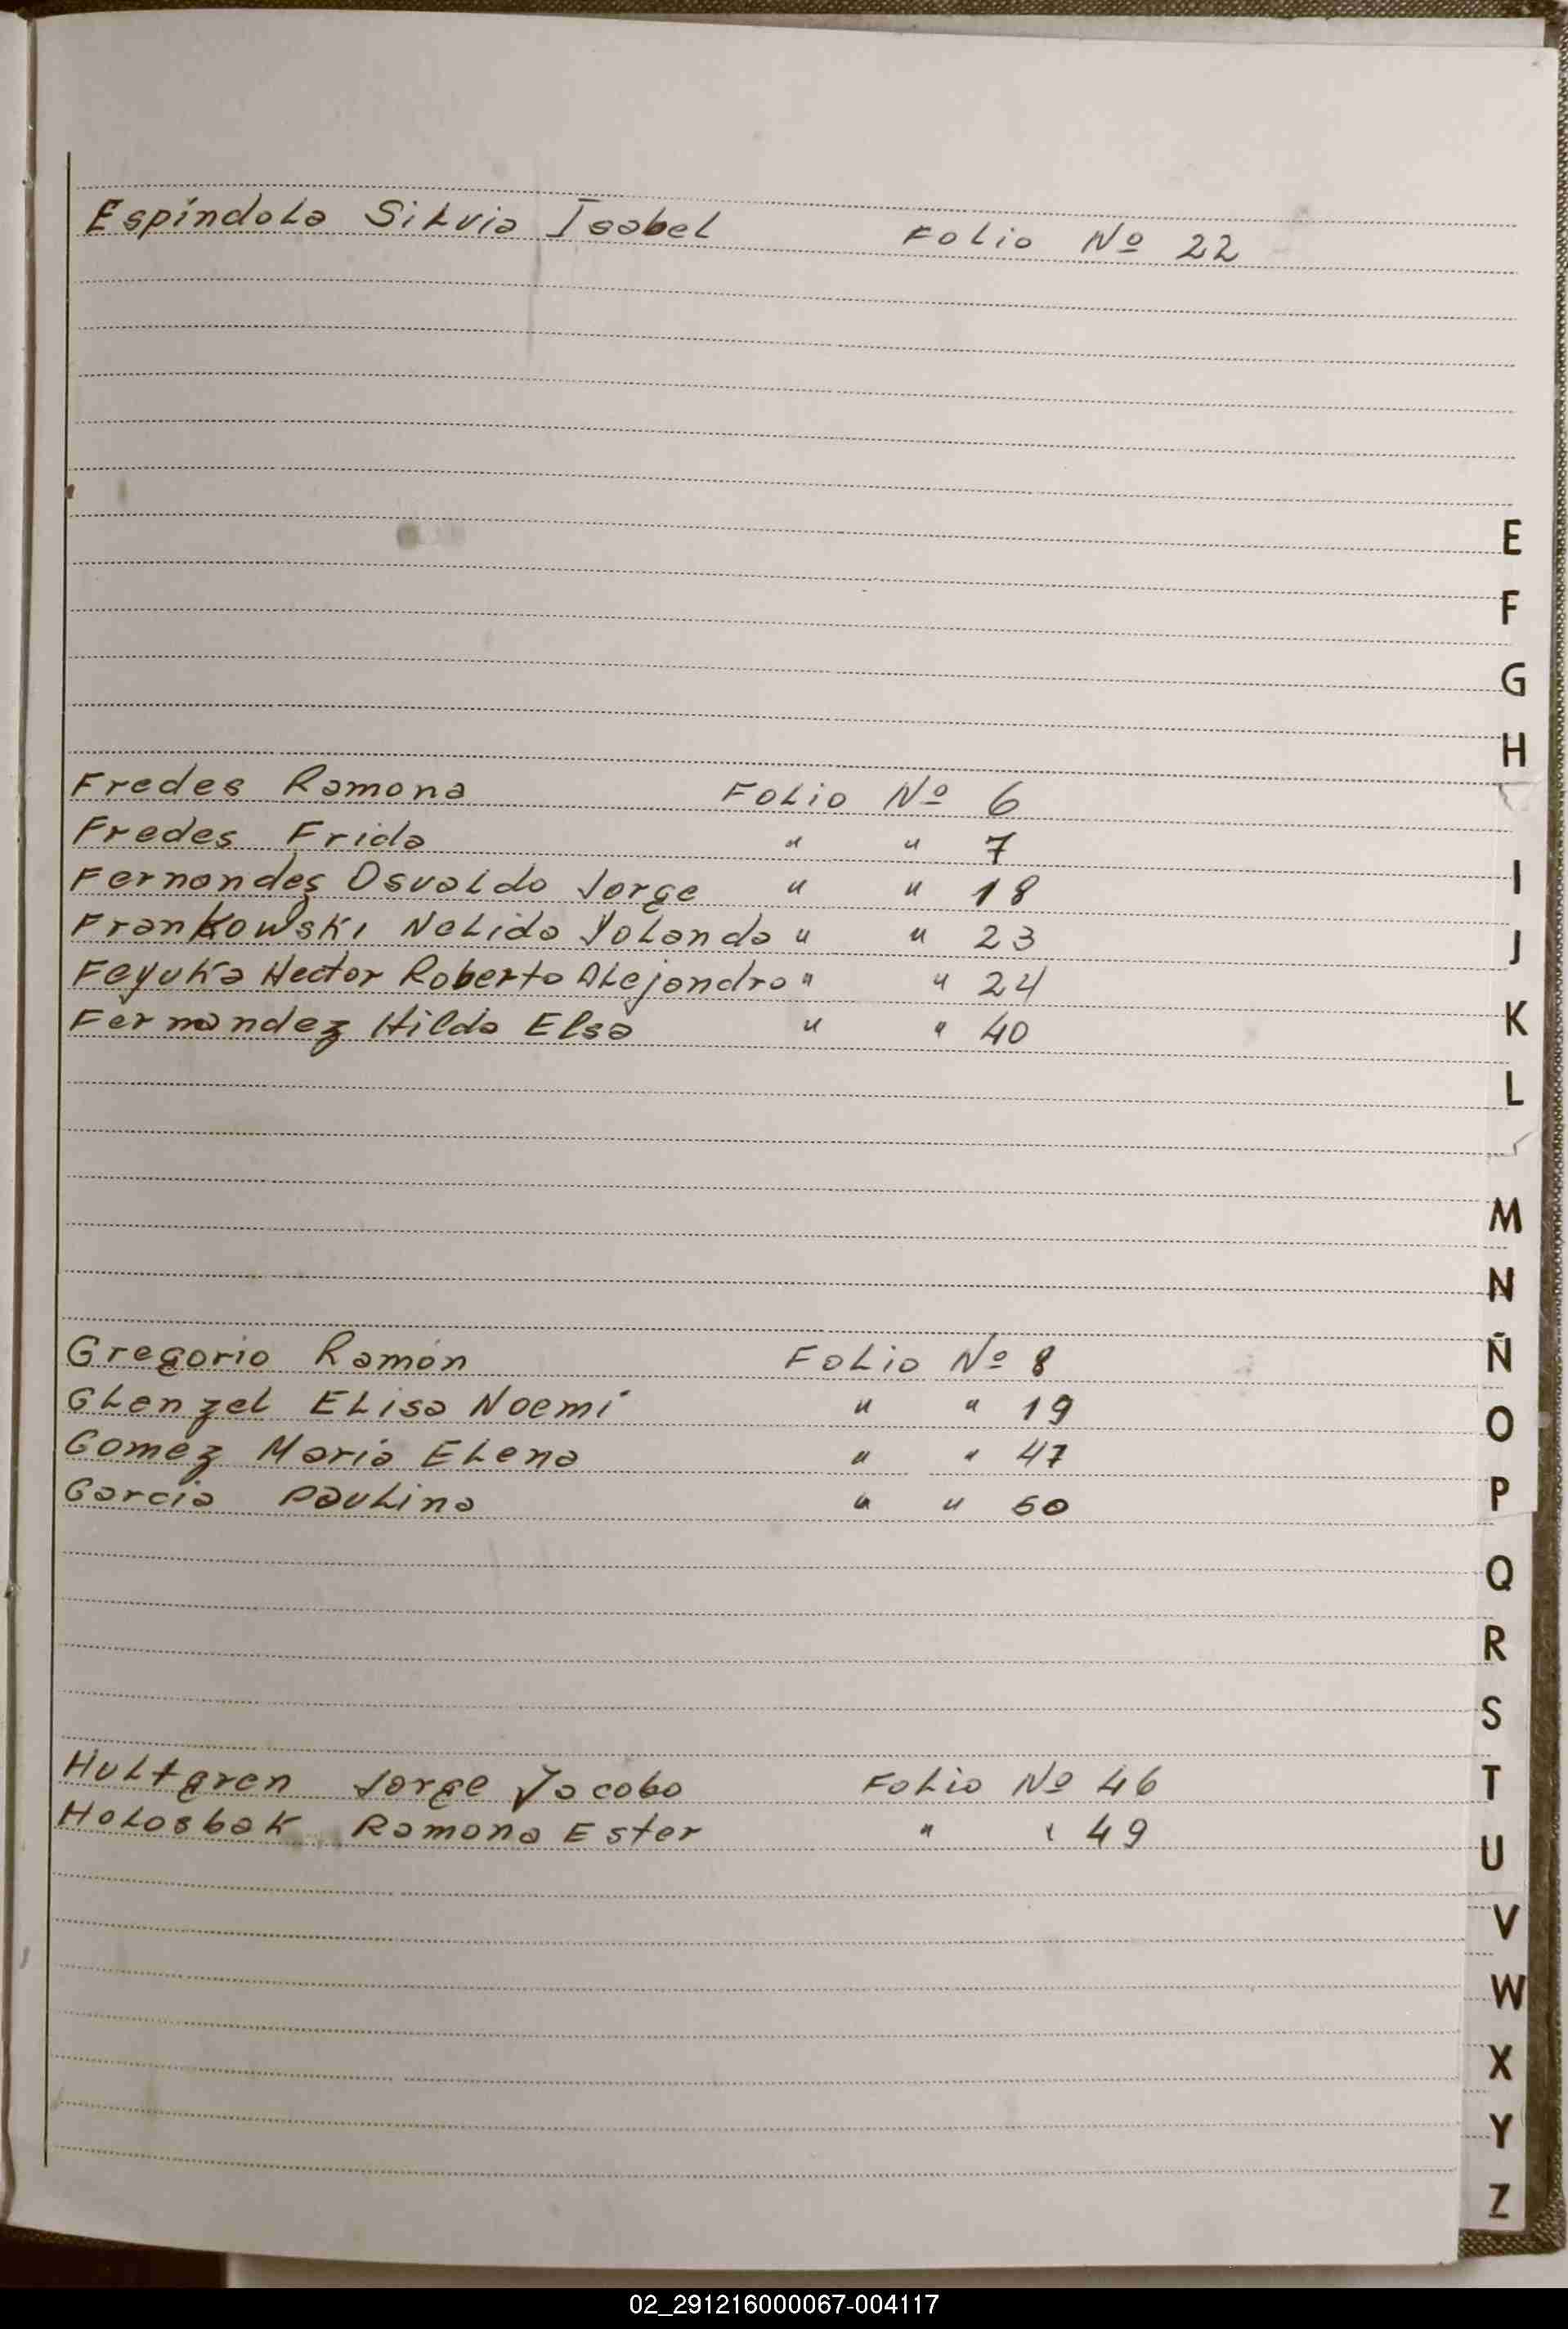 Espíndola Silvia Isabel Folio Nº 22
E
F
G
H
Fredes Ramona Folio Nº 6
Fredes Frida " " 7
Fernandes Osvaldo Jorge " " 18
I
Frankowski Nelida Yolanda " " 23
J
Feyuka Hector Roberto Alejandro " " 24
Fernandez Hilda Elsa " " 40
K
L
M
N
Gregorio Ramón Folio Nº 8
Ñ
Glenzel Elisa Noemí " " 19
O
Gomez María Elena " " 47
García Paulina " " 50
P
Q
R
S
Hultgren Jorge Jacobo Folio Nº 46
T
Holosbak Ramona Ester " " 49
U
V
W
X
Y
Z
02_291216000067-004117